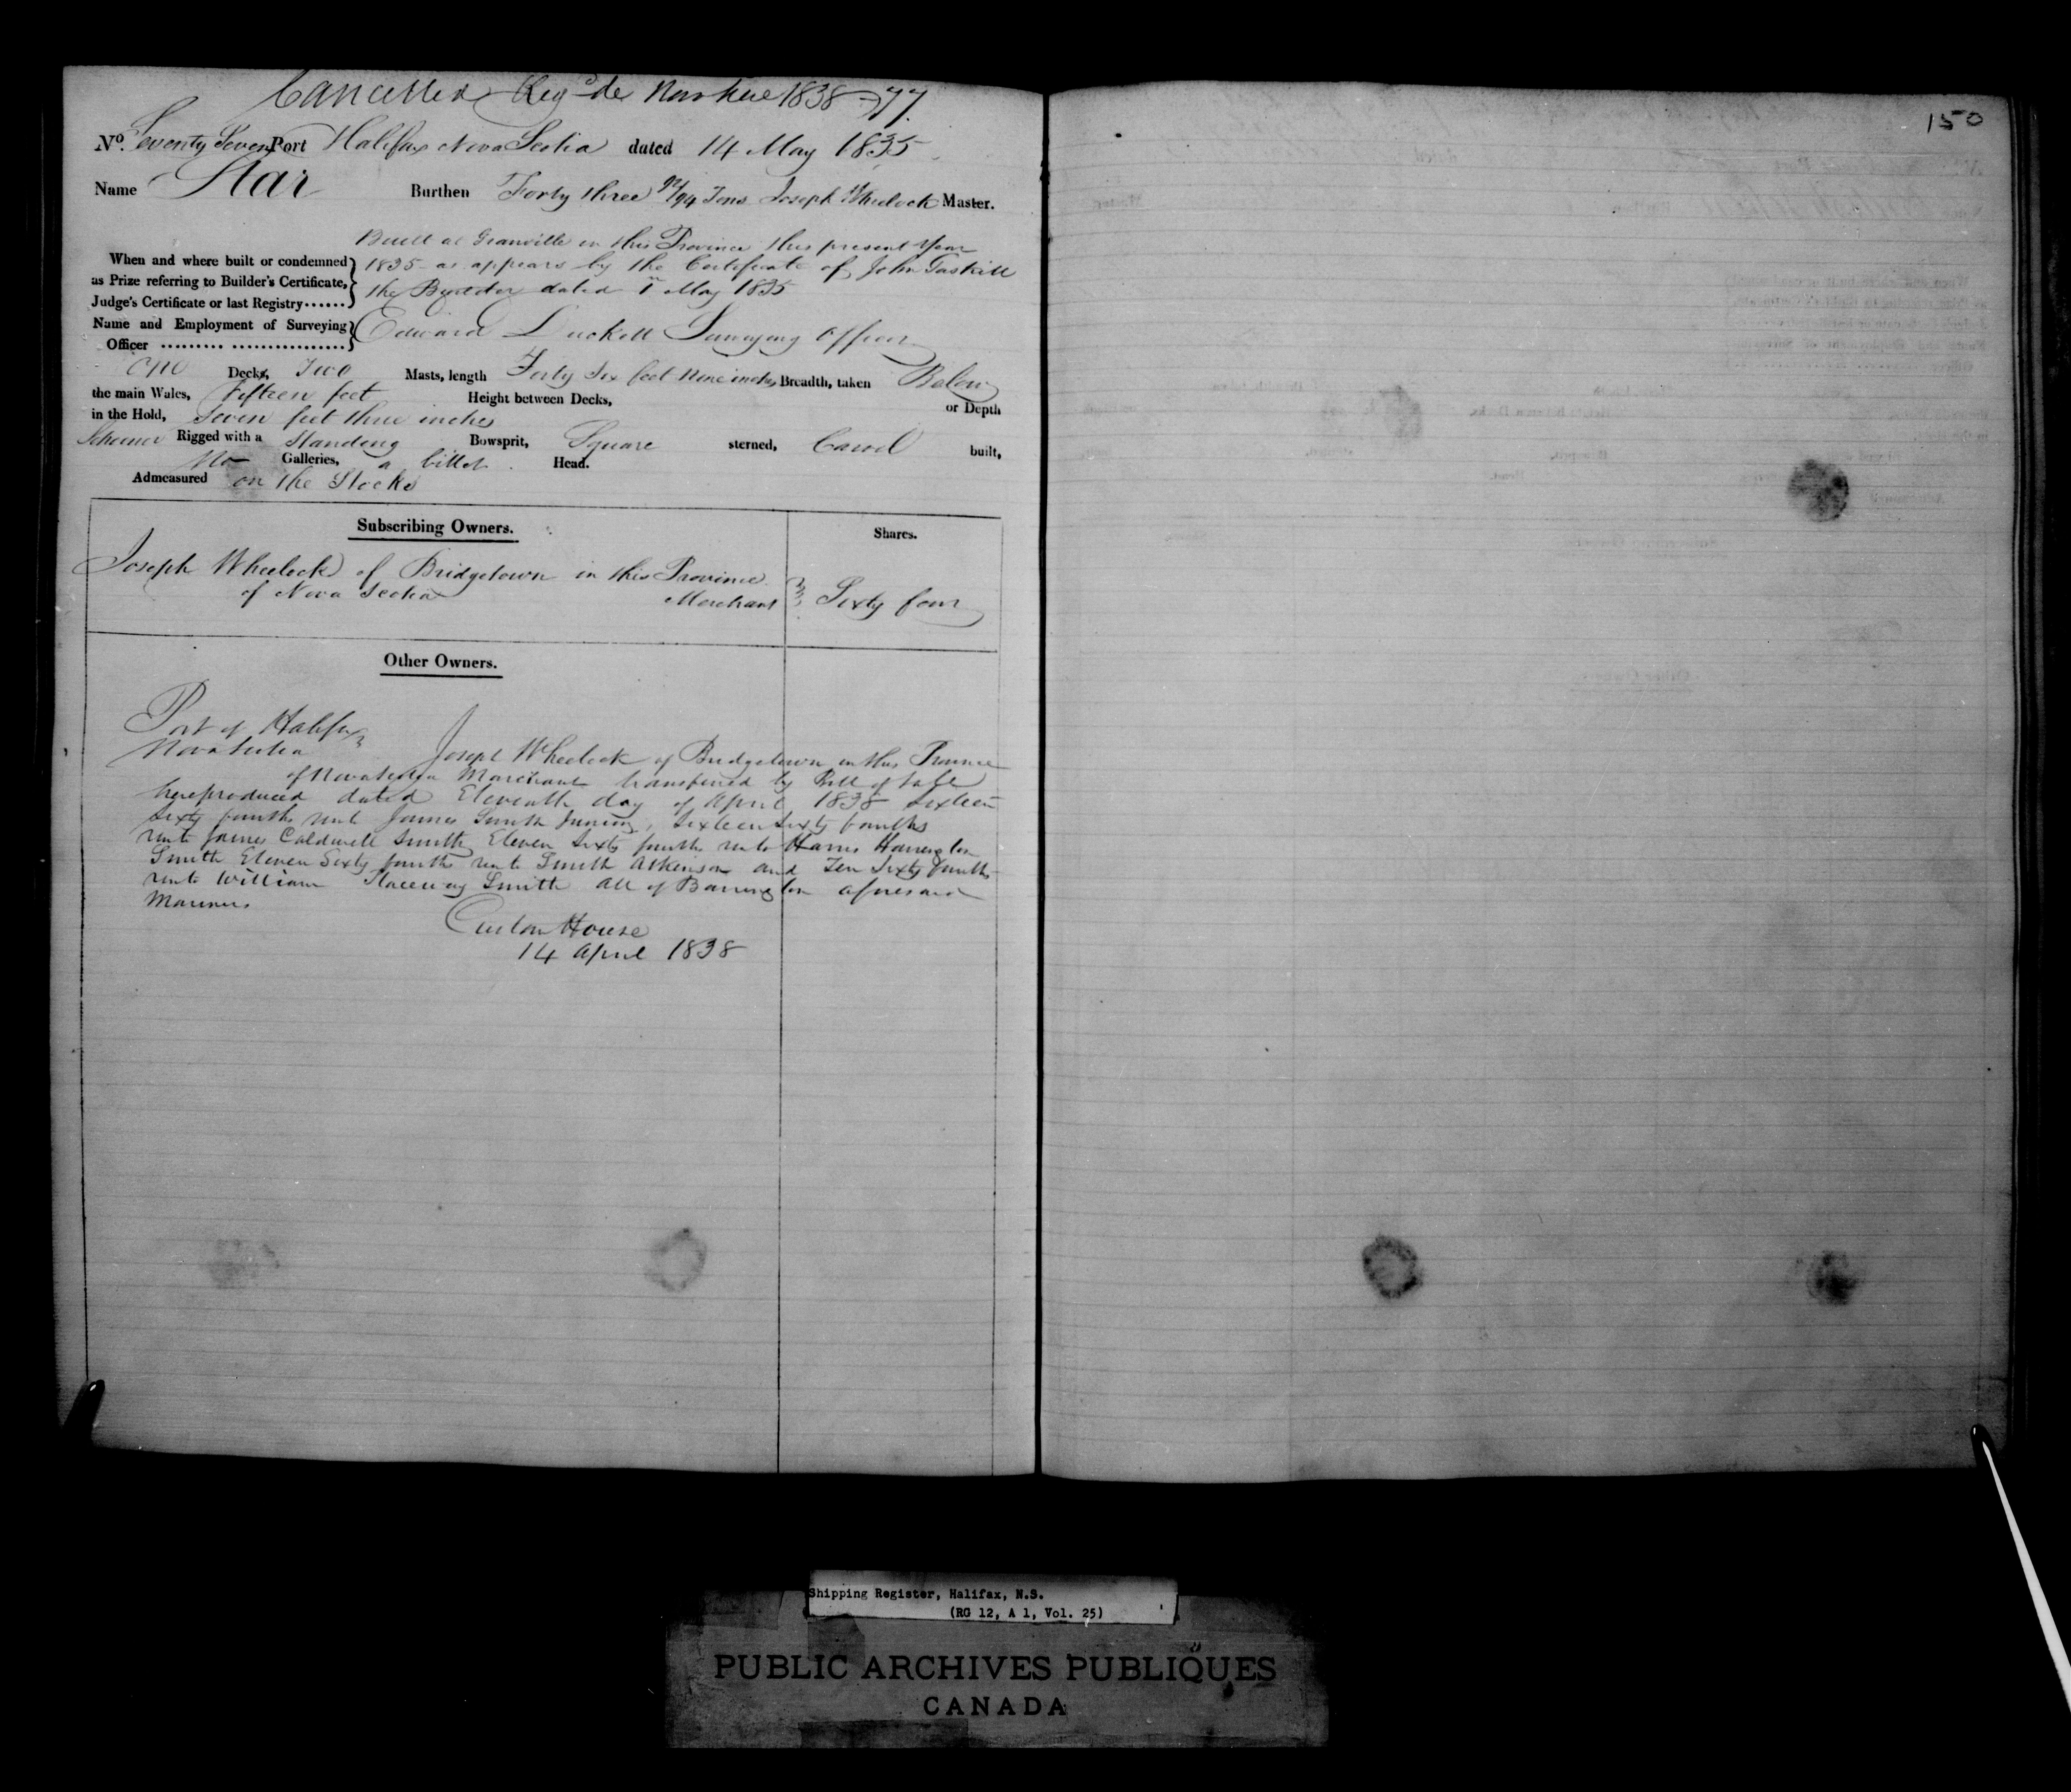 Cancelled Reg^d de 1838 77.
No. Seventy Seven Port Halifax Nova Scotia dated 14 May 1835
Name Star Burthen Forty three 92/94 Tons Joseph Wheelock Master.
Built at Granville in this Province this present Year
When and where built or condemned 1835 as appears by the Certificate of John Gaskill
as Prize referring to Builder's Certificate, the Builder dated 1st May 1835
Judge's Certificate or last Registry......
Name and Employment of Surveying Edward Luckett Surveying Officer
Officer ......... ................
One Decks, Two Masts, length Forty Six feet Nine inches Breadth, taken Below
the main Wales, Fifteen feet Height between Decks, or Depth
in the Hold, Seven feet three inches
Schooner Rigged with a Standing Bowsprit, Square sterned, Carvel built,
No Galleries, a billet Head.
Admeasured on the Stocks
Subscribing Owners. Shares.
Joseph Wheelock of Bridgetown in this Province
of Nova Scotia Merchant Sixty four
Other Owners.
Port of Halifax
Nova Scotia Joseph Wheelock of Bridgetown in this Province
of Nova Scotia Merchant transferred by Bill of Sale
here produced dated Eleventh day of April 1838 Sixteen
Sixty fourths unto James Smith Junior, Sixteen Sixty fourths
unto James Caldwell Smith Eleven Sixty fourths unto Harris Harrington
Smith Eleven Sixty fourths unto Smith Atkinson and Ten Sixty fourths
unto William Smith All of Barrington aforesaid
Mariners
Custom House
14 April 1838
150
Shipping Register, Halifax, N.S.
(RG 12, A 1, Vol. 25)
PUBLIC ARCHIVES PUBLIQUES
CANADA